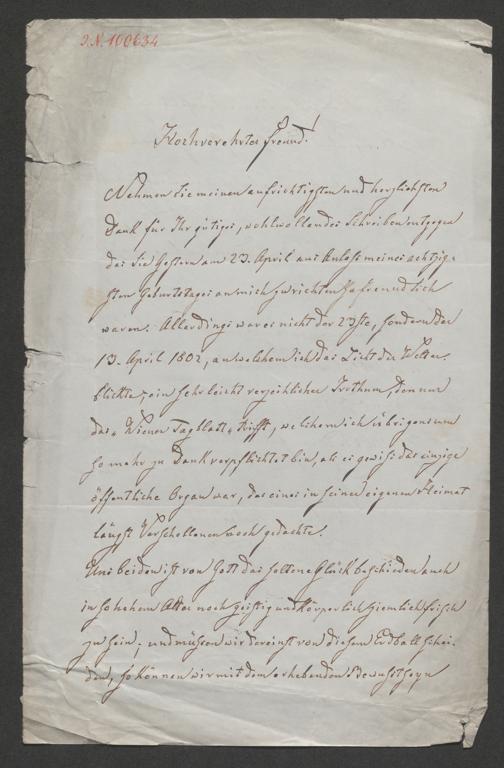 J.N. 100634
Hochverehrter Freund!
Nehmen Sie meinen aufrichtigsten und herzlichsten
Dank für Ihr gütiges, wohlwollendes Schreiben entgegen
das Sie gestern am 23. April aus Anlaß meines achtzig-
sten Geburtstages an mich zu richten so freundlich
waren. Allerdings war es nicht der 23ste, sondern der
13. April 1802, an welchem ich das Licht der Welt er-
blickte, ein sehr leicht verzeihlicher Irrthum, der nur
das „Wiener Tagblatt" trifft, welchem ich übrigens um
so mehr zu Dank verpflichtet bin, als es gewiß das einzige
öffentliche Organ war, das eines in seiner eigenen Heimat
längst Verschollenen noch gedachte.
Uns beiden ist von Gott das seltene Glück beschieden auch
in so hohem Alter noch geistig und körperlich ziemlich frisch
zu sein; und müssen wir dereinst von diesem Erdball schei-
den, so können wir mit dem erhebenden Bewußtseyn